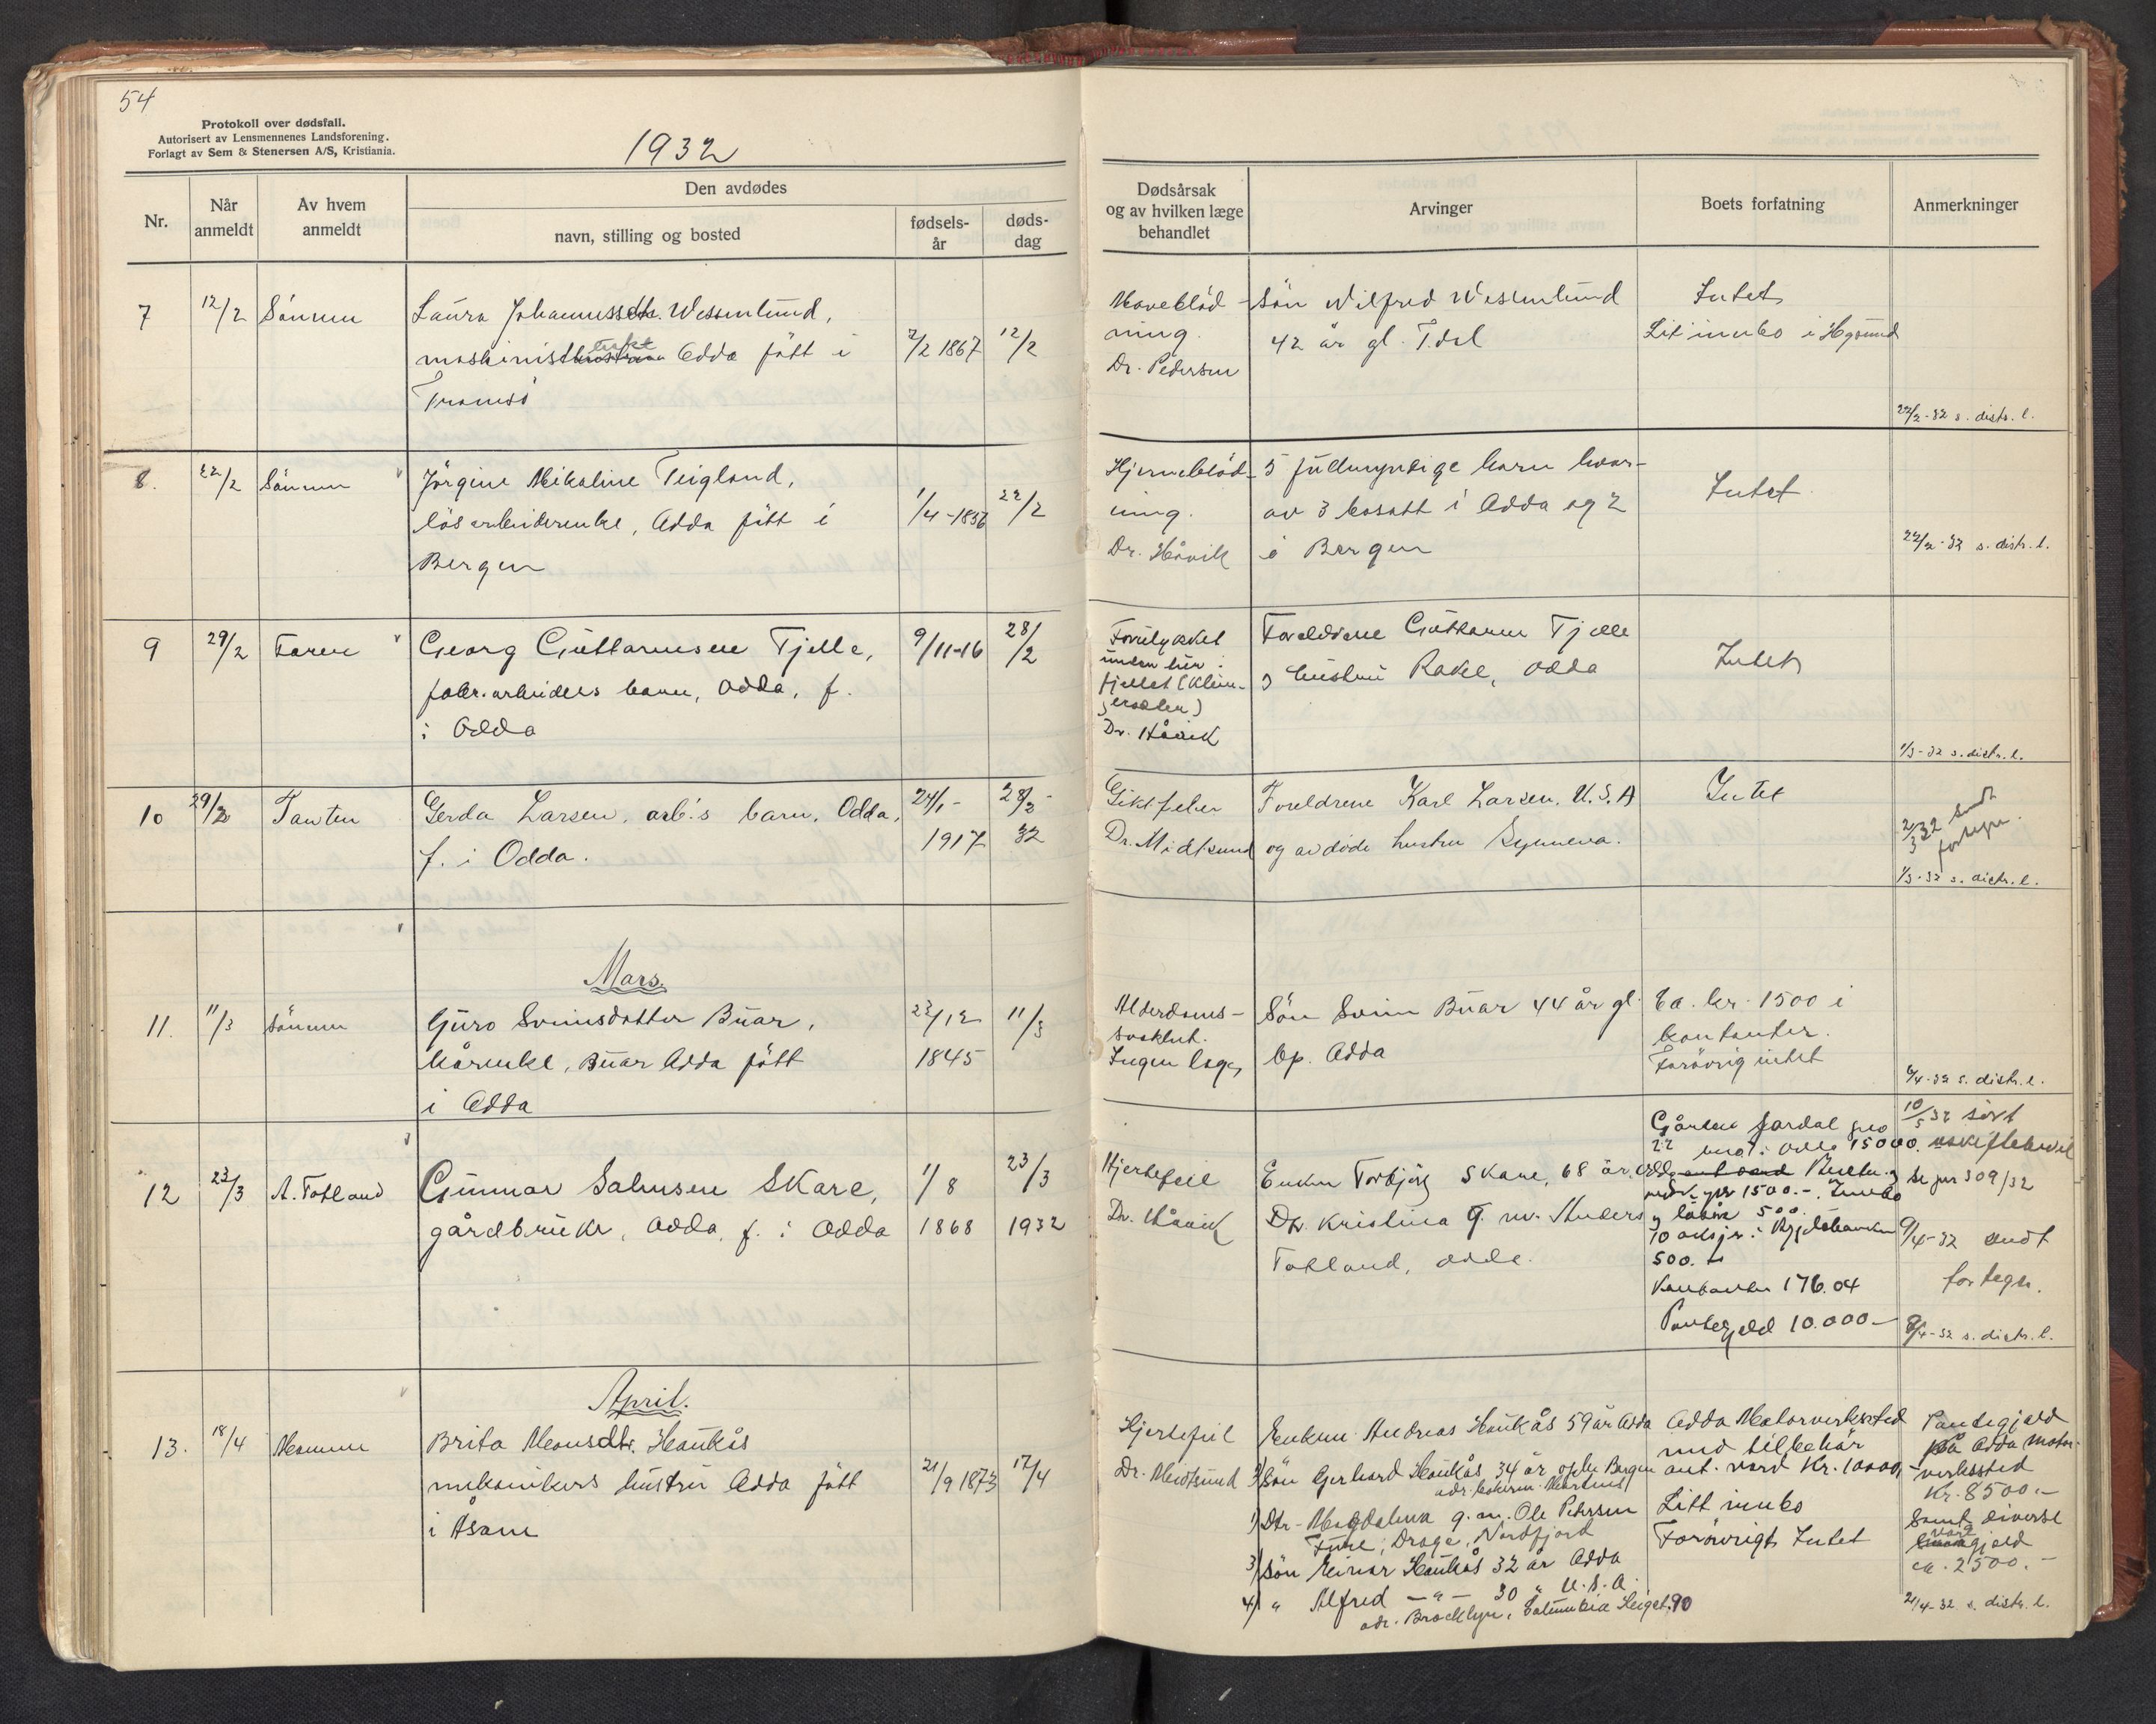 54
Protokoll over dødsfall.
Autorisert av Lensmennenes Landsforening.
Forlagt av Sem & Stenersen A/S, Kristiania.
1932
Nr.
Når anmeldt
Av hvem anmeldt
Den avdødes
navn, stilling og bosted
fødselsår
dødsdag
Dødsårsak og av hvilken læge behandlet
Arvinger
Boets forfatning
Anmerkninger
7
12/2
Sönnen
Laura Johannessdtr. Wessenlund,
maskinist enke Odda fött i
Tromsö
7/2 1867
12/2
Maveblöd-
ning.
Dr. Pedersen
Sön Wilfred Wessenlund
42 år gl. T.dal
Intet
Lit innbo i Hgsund
22/2-32 s. distr. l.
8.
22/2
Sönnen
Jörgine Mikaline Teigland,
lösarbeiderenke, Odda fött i
Bergen
1/4-1856
22/2
Hjerneblöd-
ning.
Dr. Håvik
5 fullmyndige barn hvor-
av 3 bosatt i Odda og 2
i Bergen
Intet
22/2-32 s. distr. l.
9
29/2
Faren
Georg Guttormsen Tjelle,
fabr.arbeiders barn, Odda, f.
i Odda
9/11-16
28/2
Forulykket
under tur i
fjellet
Dr. Håvik
Foreldrene Guttorm Tjelle
og hustru Rakel, Odda
Intet
1/3-32 s. distr. l.
10
29/2
Tanten
Gerda Larsen, arb.'s barn, Odda,
f. i Odda.
24/1-
1917
28/2-
32
Giktfeber
Dr. Midtsund
Foreldrene Karl Larsen, U.S.A
og avdöde hustru Synneva.
Intet
2/3 32 sendt
fortegn.
1/3-32 s. distr. l.
Mars.
11.
11/3
Sönnen
Guro Sveinsdotter Buar,
kårenke, Buar Odda fött
i Odda
23/12
1845
11/3
Alderdoms-
svakhet.
Ingen læge
Sön Svein Buar 44 år gl.
bp. Odda
Ca. kr. 1500 i
kontanter.
Forövrig intet
6/4-32 s. distr. l.
12
23/3
A. Tokland
Gunnar Salmsen Skare,
gårdbruker, Odda, f. i Odda
1/8
1868
23/3
1932
Hjertefeil
Dr. Håvik
Enken Torbjörg Skare, 68 år, Odda
Dtr. Kristina g. m. Anders
Tokland, Odda.
Gården Jordal gno
22 15000.
1500.-. Innbo
og lösöre 500.
10 aksjer i
500.-
Kontanter 176.04
Pantegjeld 10.000-
10/5 32 sövt
uskiftebevil
Se jnr 309/32
9/4-32 sendt
fortegn.
8/4-32 s. distr. l.
April.
13.
18/4
Mannen
Brita Monsdtr. Haukås
mekanikers hustru Odda fött
i Åsane
21/9 1873
17/4
Hjertefeil
Dr. Midtsund
Enkem. Andreas Haukås 59 år Odda
2) Sön Gerhard Haukås 34 år Bergen
1) Dtr. Magdalena g. m. Ole Petersen
Fure, Drage, Nordfjord
3) Sön Einar Haukås 32 år Odda
4) " Alfred -"- 30 " U.S.A.
adr. Brooklyn, Columbia Heigst. 90
Odda Motorverksted
med tilbehör
ant. verd Kr. 10000,-
Litt innbo
Forövrigt Intet
Pantegjeld
på Odda Motor-
verksted
Kr. 8500.-
Samt diverse
gjeld
ca. 2500.-
21/4-32 s. distr. l.